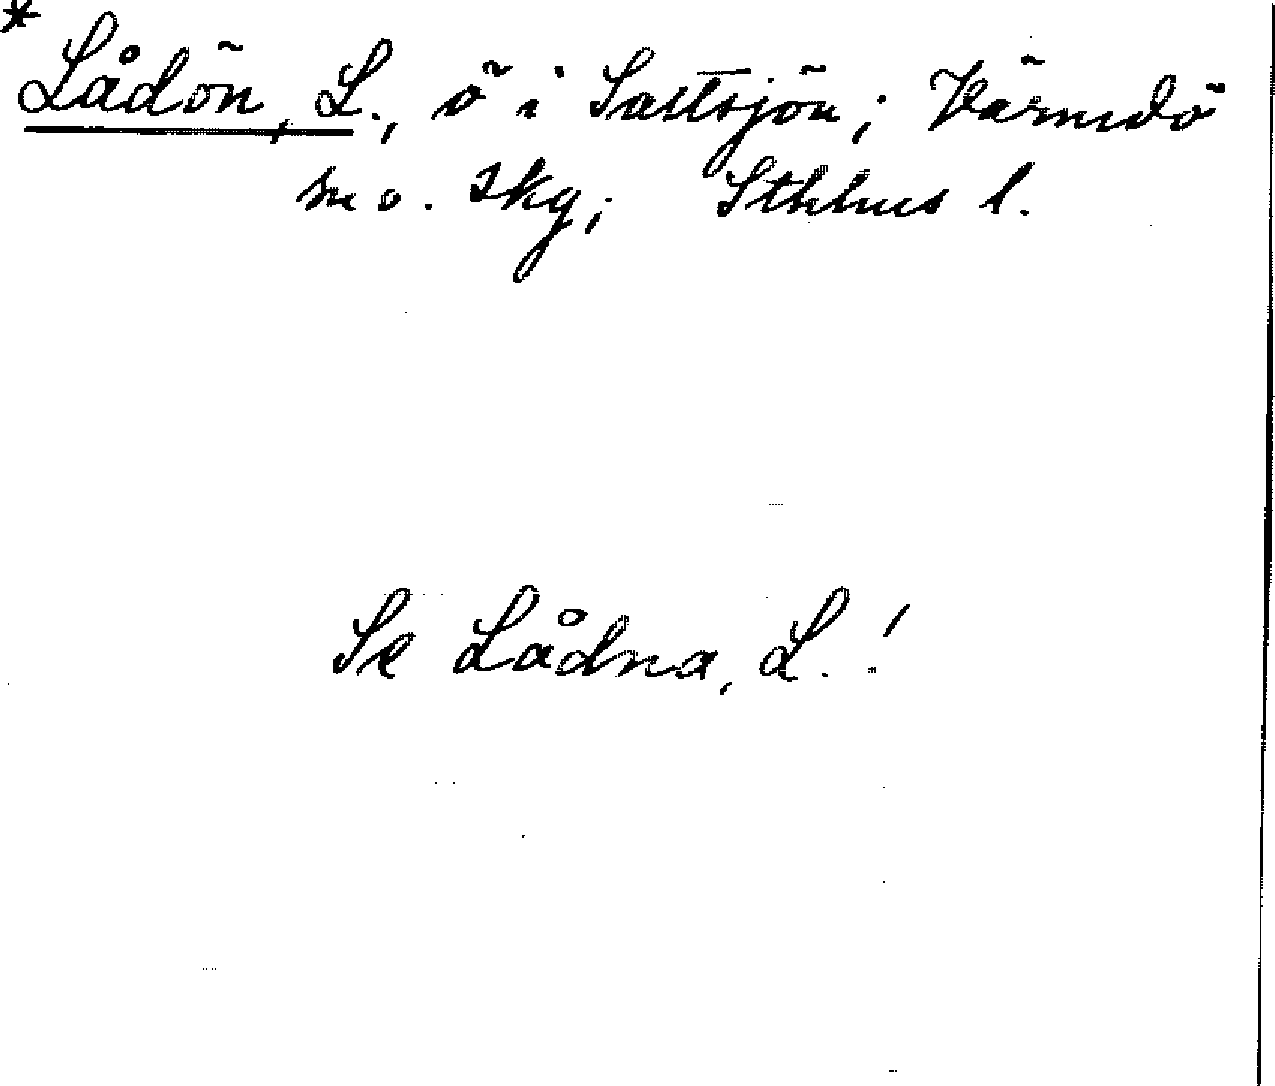 * Lådön, L., ö i Saltsjön; Värmdö
so. skg; Sthlms l.
Se Lådna, L.!